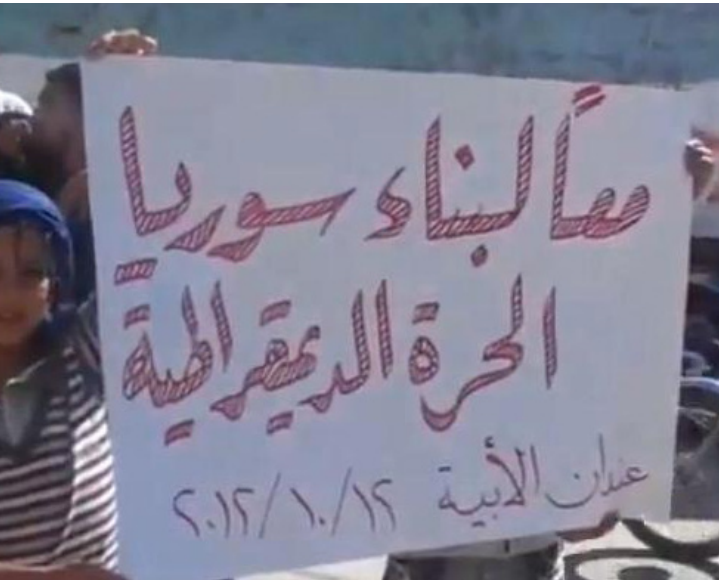 معًا لبناء سوريا
الحرة الديمقراطية
عندان الأبية ٢٠١٢/١٠/١٢